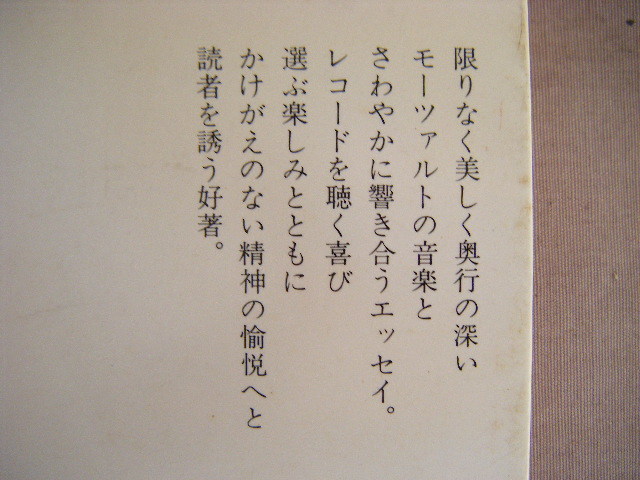 限りなく美しく奥行の深い
モーツァルトの音楽と
さわやかに響き合うエッセイ。
レコードを聴く喜び
選ぶ楽しみとともに
かけがえのない精神の愉悦へと
読者を誘う好著。